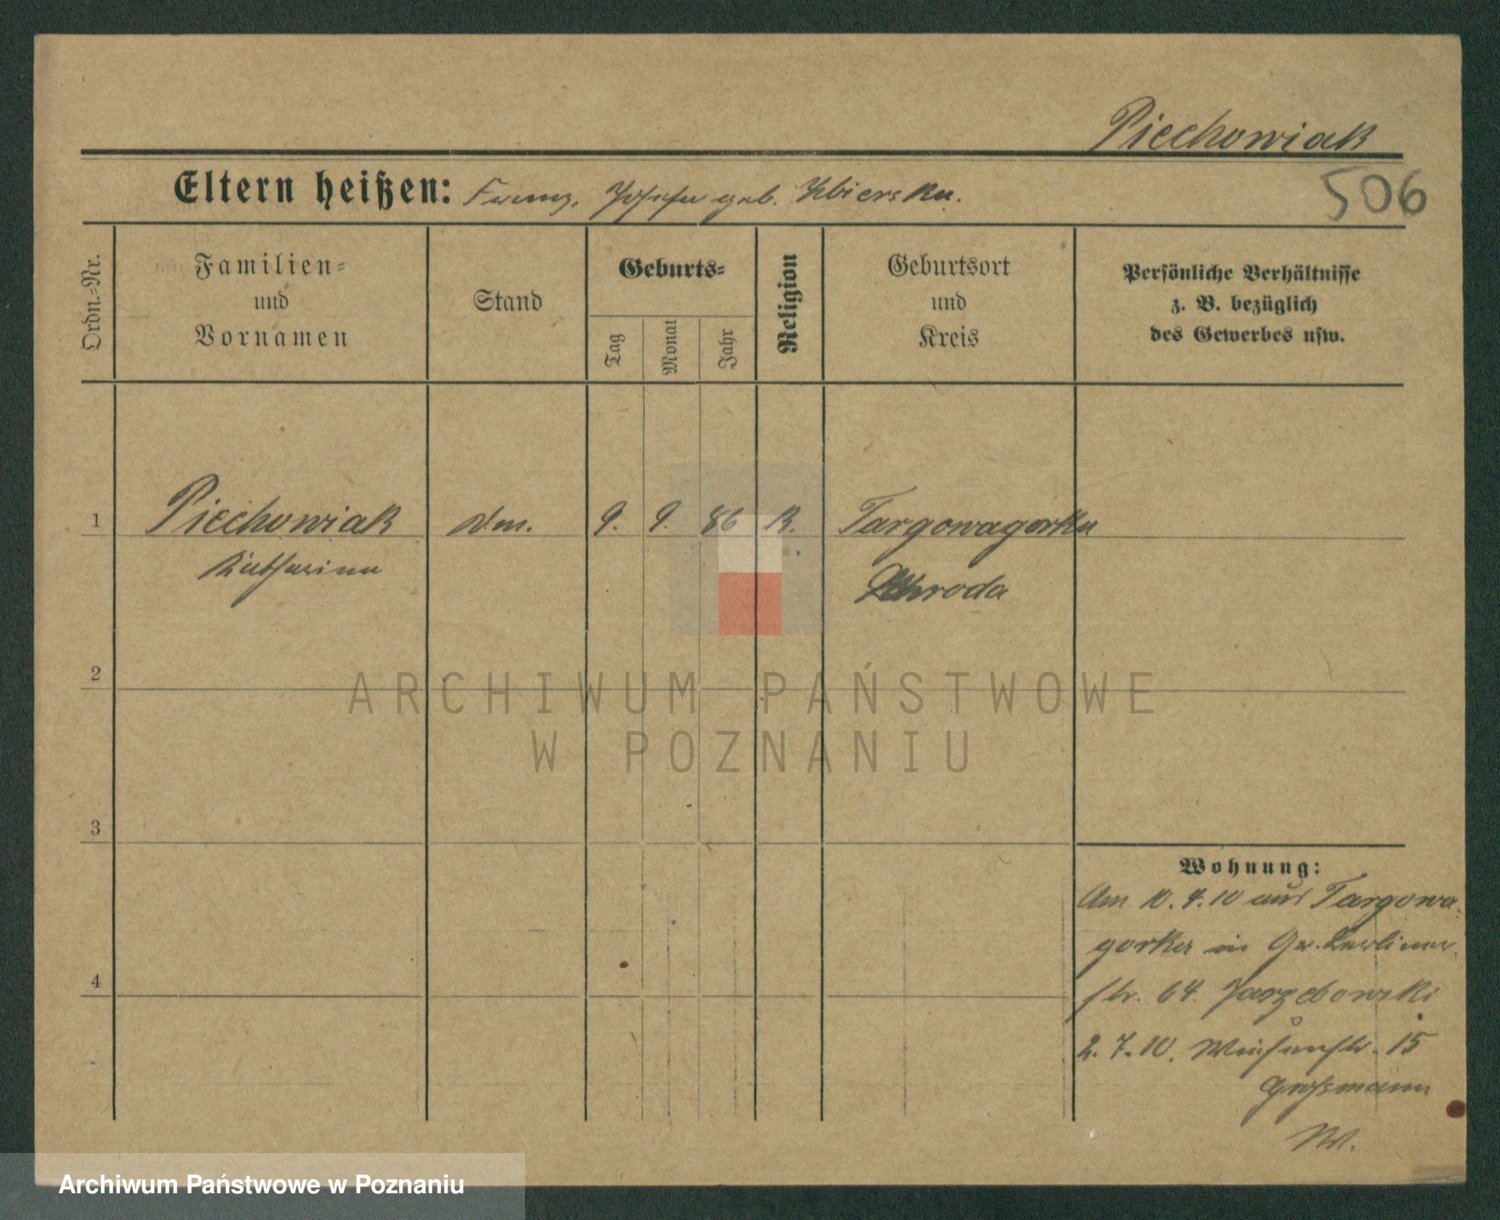 Piechowiak
Eltern heißen: Franz, Josefa geb. Zbierska.
506
Ordn.-Nr.
Familien-
und
Vornamen
Stand
Geburts-
Tag
Monat
Jahr
Religion
Geburtsort
und
Kreis
Persönliche Verhältnisse
z. B. bezüglich
des Gewerbes usw.
1 Piechowiak 9. 9. 86 K. Targowagorka
Katharina Schroda
2
ARCHIWUM PAŃSTWOWE
W POZNANIU
3
Wohnung:
Am 10.4.10 aus Targowa
gorka in Gr. Berliner
str. 64. Jarzebowski
4
2.7.10. 15
Großmann
W.
Archiwum Państwowe w Poznaniu